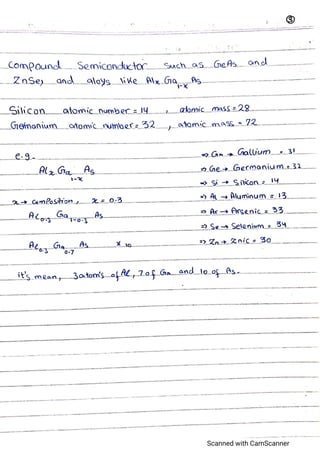 ③
Compound Semiconductor such as GeAs and
ZnSe, and aloys like Alx Ga1-x As
Silicon atomic number = 14 , atomic mass = 28
Germanium atomic number = 32 , atomic mass = 72
e.g.
⇒ Ga → Gallium = 31
Alx Ga1-x As
⇒ Ge → Germanium = 32
⇒ Si → Silicon = 14
x → Composition , x = 0.3
⇒ Al → Aluminum = 13
Al0.3 Ga1-0.3 As
⇒ Ar → Arsenic = 33
⇒ Se → Selenium = 34
Al0.3 Ga0.7 As x 10
⇒ Zn → Znic = 30
it's mean, 3 atom's of Al, 7 of Ga and 10 of As.
Scanned with CamScanner